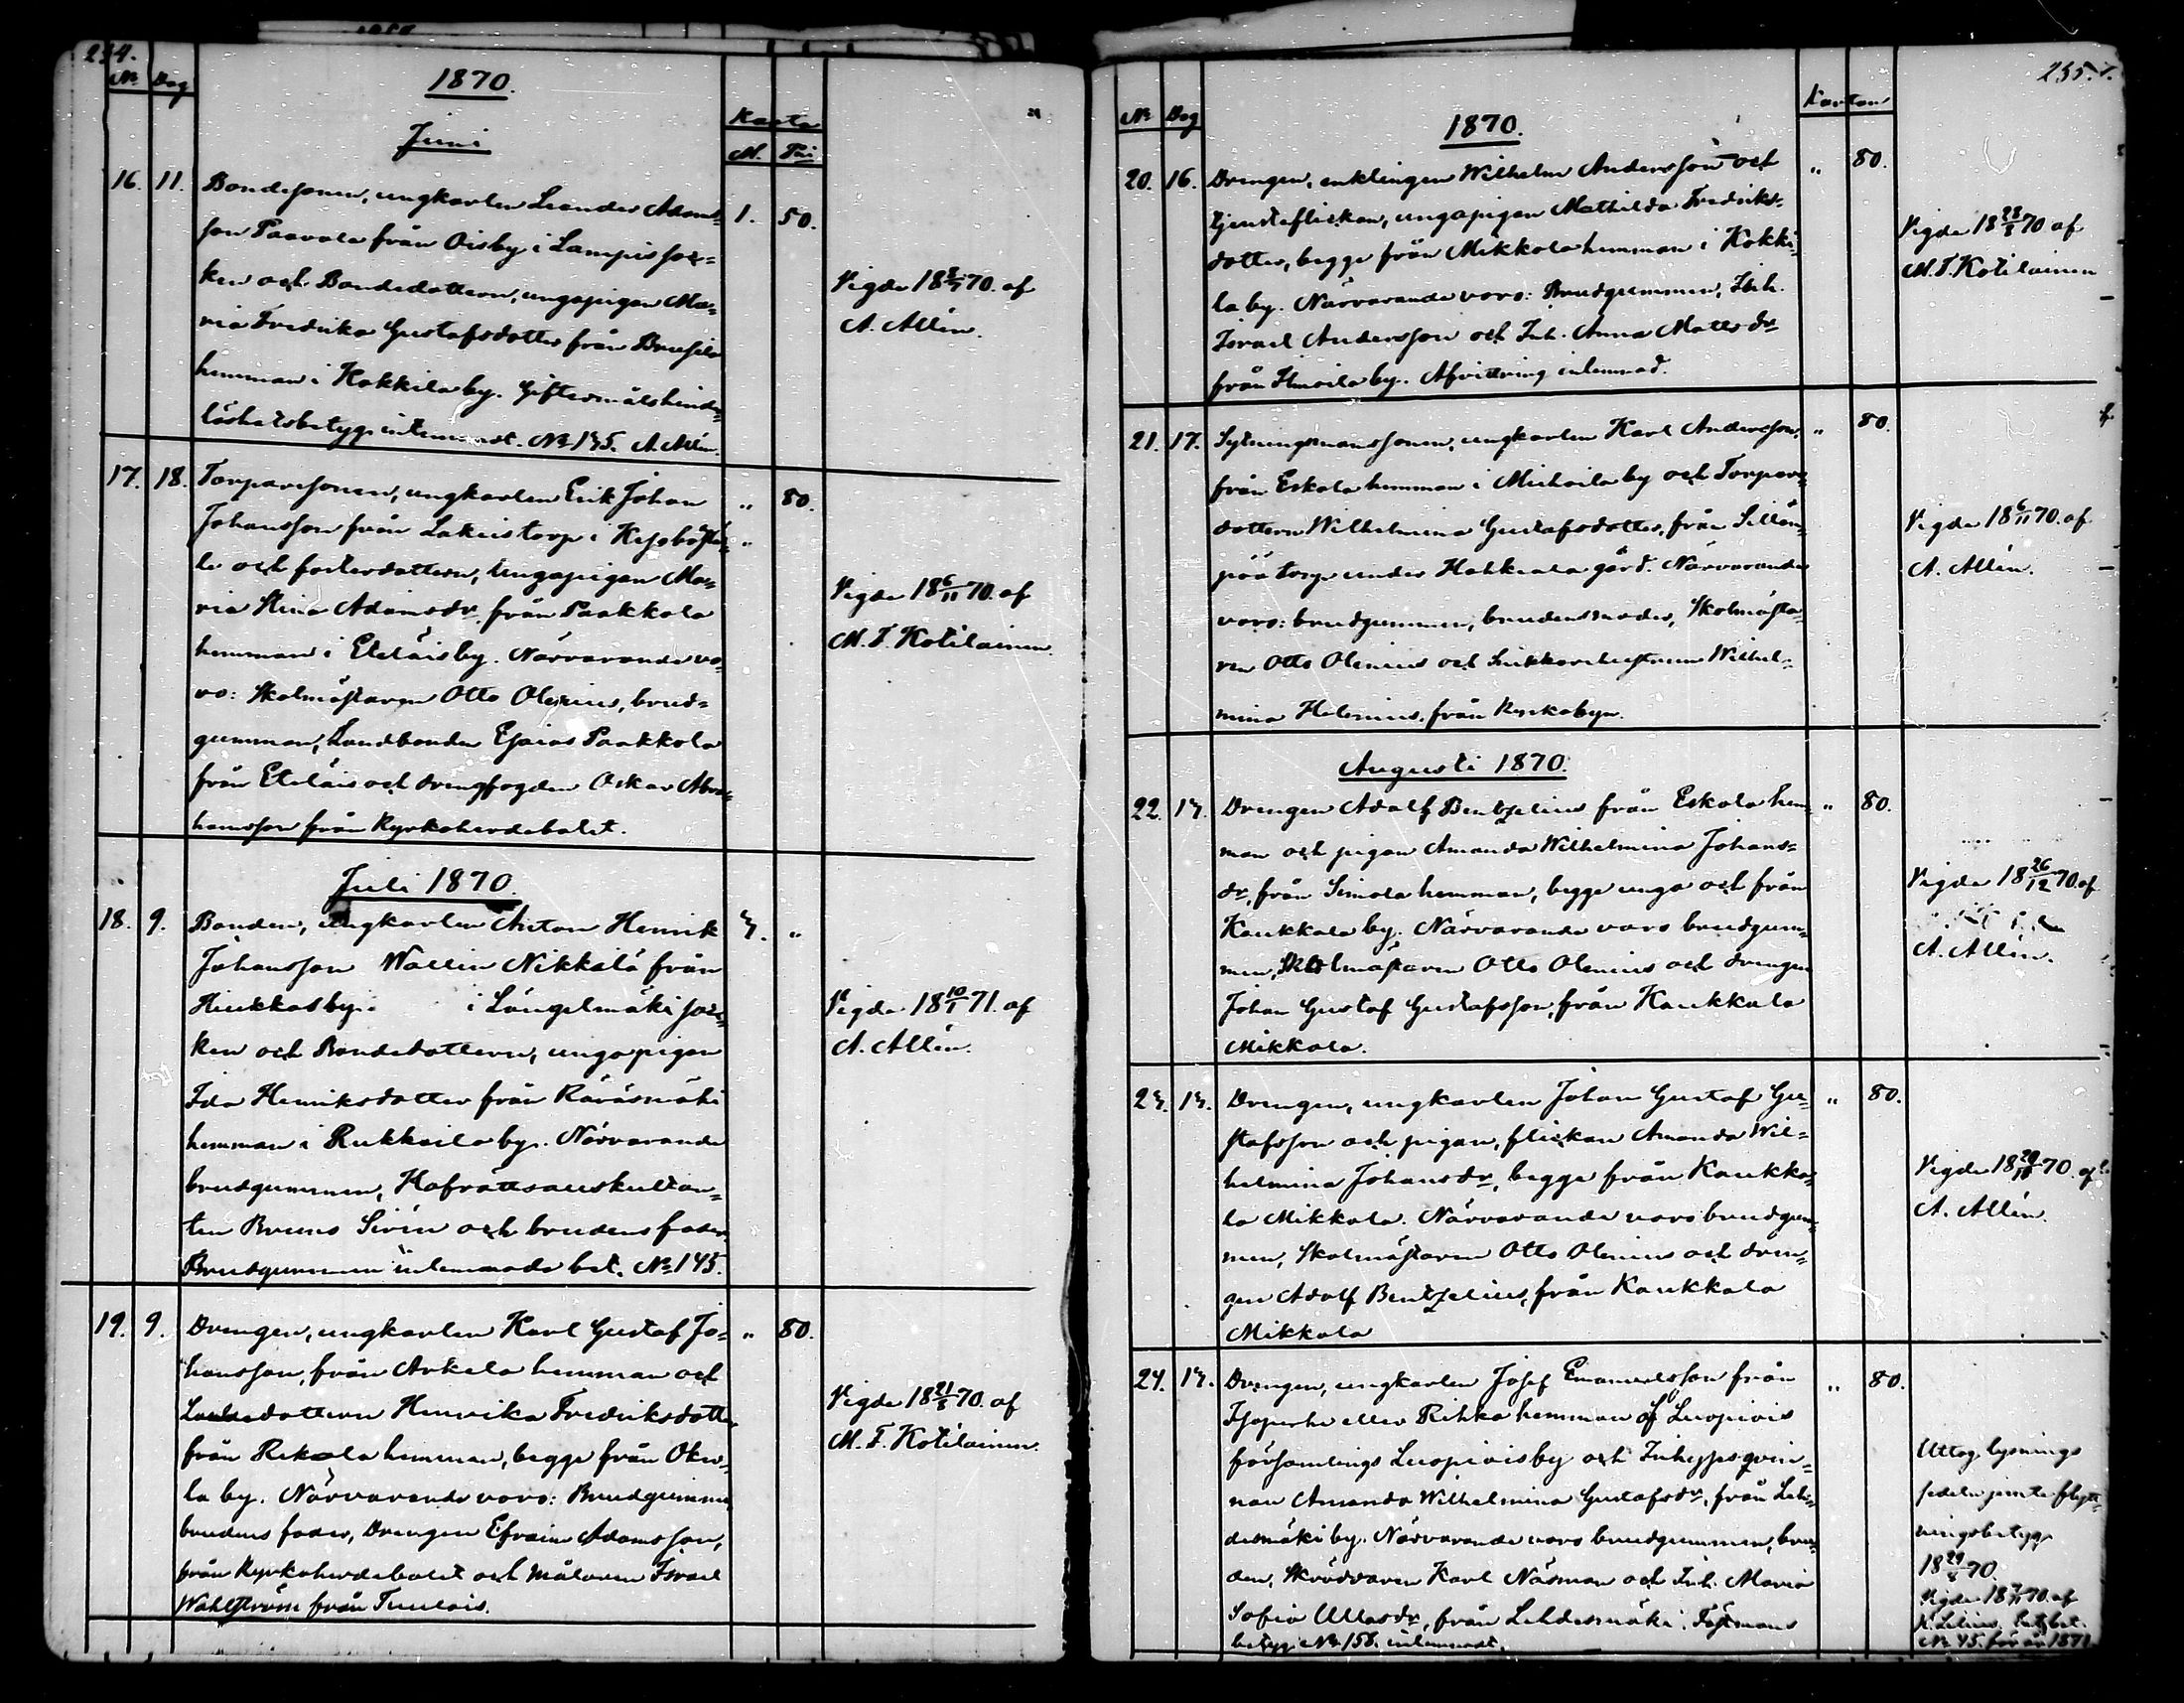 234.
No Dag
1870.
Juni
Karta
M. Pni
16. 11. Bondesonen, ungkarlen Leander Adams= 1. 50.
son Paavola från Oisby i Lampis soc=
ken och Bondedottern, unga pigan Ma=
ria Fredrika Gustafsdotter från
hemman i Kokkila by. Giftermålshinder=
löshetsbetyg inlemnadt. No 145. A. Allén.
Vigde 18 70. af
A. Allén.
17. 18. Torparesonen, ungkarlen Erik Johan „ 80.
Johansson från Lakeistorp i
le och fosterdottern, unga pigan Ma=
ria Stina Adamsdr från Paakkola
hemman i Eteläis by. Närvarande vo=
ro: Skolmästaren Otto Olenius, brud=
gummen, Landbonden Esaias Paakkola
från Eteläis och drengfogden Oskar Abra=
hamsson från Kyrkoherdebolet.
Vigde 18 6/11 70. af
M. F. Kotilainen.
Juli 1870.
18. 9. Bonden, ungkarlen Anton Henrik 4. „
Johansson Wallin Nikkilä från
Hiukkas by i Längelmäki soc=
ken och Bondedottern, unga pigan
Ida Henriksdotter från Räväsmäki
hemman i Rukkoila by. Närvarande
brudgummen, Hofrättsauskultan=
ten Bruno Sirén och brudens fader.
Brudgummen inlemnade bet. No 145.
Vigde 18 10/1 71. af
A. Allén.
19. 9. Drengen, ungkarlen Karl Gustaf Jo= „ 80.
hansson, från Arkela hemman och
dottern Henrika Fredriksdotter
från Rekola hemman, begge från
la by. Närvarande voro: Brudgummen
brudens fader, Drengen Efraim Adamsson,
från Kyrkoherdebolet och målaren Israel
Wahlström från Tuulois.
Vigde 18 70. af
M. F. Kotilainen.
235.
No Dag
1870.
Kartan
20. 16. Drengen, enklingen Wilhelm Andersson och „ 80.
tjensteflickan, unga pigan Mathilda Fredriks=
dotter, begge från Mikkola hemman i Kokki=
la by. Närvarande voro: Brudgummen, Inh.
Israel Andersson och Inh. Anna Matts dr
från Ilmoila by. Afvittring inlemnad.
Vigde 18 70 af
M. F. Kotilainen
21. 17. Sytningsmanssonen, ungkarlen Karl Andersson, „ 80.
från Eskola hemman i Miehoila by och Torpare=
dottern Wilhelmina Gustafsdotter, från Sillan=
pää torp under Hahkiala gård. Närvarande
voro: brudgummen, brudens moder, Skolmästa=
ren Otto Olenius och Wilhel=
mina Helenius, från Kyrkobyn.
Vigde 18 6/11 70. af
A. Allén.
Augusti 1870.
22. 14. Drengen Adolf Bentzelius från Eskola hem= „ 80.
man och pigan Amanda Wilhelmina Johans=
dr, från Simola hemman, begge unga och från
Kaukkala by. Närvarande voro brudgum=
men, Skolmästaren Otto Olenius och drengen
Johan Gustaf Gustafsson, från Kaukkala
Mikkola.
Vigde 18 26/12 70. af
A. Allén.
23. 14. Drengen, ungkarlen Johan Gustaf Gu= „ 80.
stafsson och pigan, flickan Amanda Wil=
helmina Johansdr, begge från Kaukka=
la Mikkola. Närvarande voro brudgum=
men, Skolmästaren Otto Olenius och dren=
gen Adolf Bentzelius, från Kaukkala
Mikkola
Vigde 18 70. af
A. Allén.
24. 14. Drengen, ungkarlen Josef Emanuelsson från „ 80.
Isoperhe eller Rihko hemman af Luopiois
församlings Luopiois by och Inhyses qvin=
nan Amanda Wilhelmina Gustafsdr, från Leh=
desmäki by. Närvarande voro brudgummen, bru=
den, Skräddaren Karl Näsman och Inh. Maria
Sofia Ullasdr, från Lehdesmäki. Fästmans
betyg No 158. inlemnadt.
Uttog lysnings
sedeln jemte flytt=
ningsbetyg
18 70.
Vigde 18 70. af
No 45. för år 1871